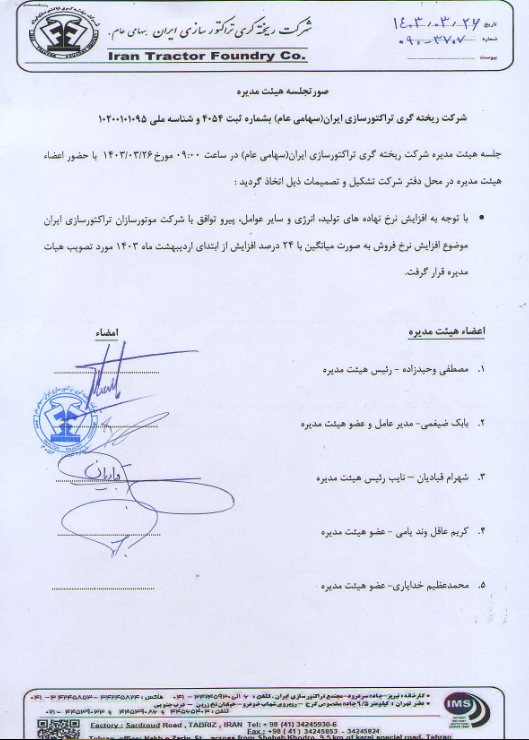 شرکت ریخته گری تراکتورسازی ایران سهامی عام.
Iran Tractor Foundry Co.
تاریخ ۱۴۰۳/۰۳/۲۶
شماره ۰۹۰-۳۷۰۷
پیوست
صورتجلسه هیئت مدیره
شرکت ریخته گری تراکتورسازی ایران(سهامی عام) بشماره ثبت ۴۰۵۴ و شناسه ملی ۱۰۲۰۰۱۰۱۰۹۵
جلسه هیئت مدیره شرکت ریخته گری تراکتورسازی ایران(سهامی عام) در ساعت ۰۹:۰۰ مورخ ۱۴۰۳/۰۳/۲۶ با حضور اعضاء
هیئت مدیره در محل دفتر شرکت تشکیل و تصمیمات ذیل اتخاذ گردید :
• با توجه به افزایش نرخ نهاده های تولید، انرژی و سایر عوامل، پیرو توافق با شرکت موتورسازان تراکتورسازی ایران
موضوع افزایش نرخ فروش به صورت میانگین با ۲۴ درصد افزایش از ابتدای اردیبهشت ماه ۱۴۰۳ مورد تصویب هیات
مدیره قرار گرفت.
اعضاء هیئت مدیره امضاء
۱. مصطفی وحیدزاده - رئیس هیئت مدیره
۲. بابک ضیغمی - مدیر عامل و عضو هیئت مدیره
۳. شهرام قبادیان – نایب رئیس هیئت مدیره
قبادیان
۴. کریم عاقل وند یامی - عضو هیئت مدیره
۵. محمدعظیم خدایاری- عضو هیئت مدیره
IMS
Factory.: Sardroud Road , TABRIZ , IRAN Tel: + 98 (41) 34245930-6
Fax.: +98 ( 41 ) 34245853 - 34245824